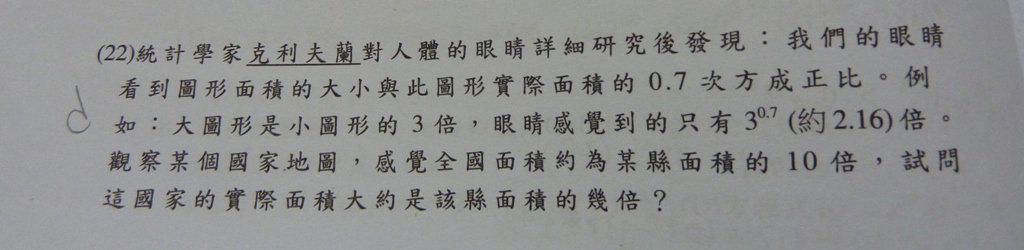 (22)統計學家克利夫蘭對人體的眼睛詳細研究後發現：我們的眼睛
看到圖形面積的大小與此圖形實際面積的 0.7 次方成正比。例
如：大圖形是小圖形的 3 倍，眼睛感覺到的只有 3^0.7 (約 2.16) 倍。
觀察某個國家地圖，感覺全國面積約為某縣面積的 10 倍，試問
這國家的實際面積大約是該縣面積的幾倍？